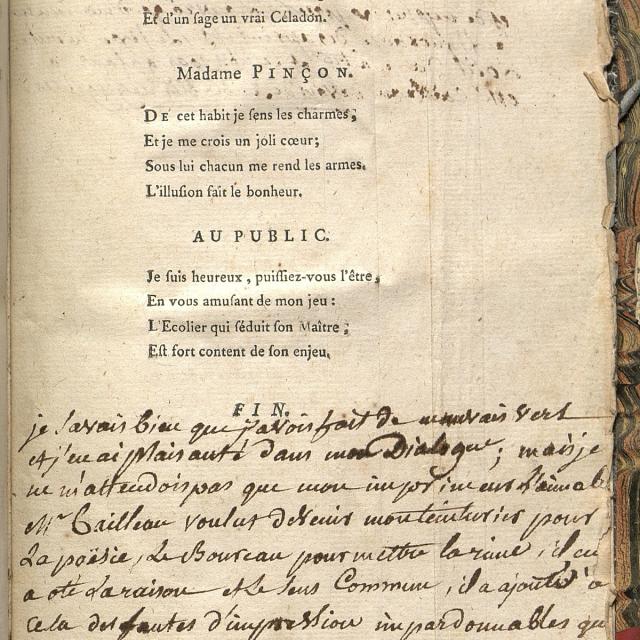 Et d'un ſage un vrai Céladon.
Madame PINÇON.
DE cet habit je ſens les charmes,
Et je me crois un joli cœur;
Sous lui chacun me rend les armes.
L'illuſion fait le bonheur.
AU PUBLIC.
Je ſuis heureux, puiſſiez-vous l'être,
En vous amuſant de mon jeu:
L'Ecolier qui ſéduit ſon Maître;
Eſt fort content de ſon enjeu.
FIN.
je savais bien que j'avois fait de mauvais vers
et j'en ai plaisanté dans mon Dialogue; mais je
ne m'attendois pas que mon imprimeur l'aimab
Mr Cailleau voulut devenir mon teinturier pour
La poësie, Le Boureau pour mettre la rime, il en
a oté La raison et Le sens Commun, il a ajouté a
cela des fautes d'impression impardonnables qu